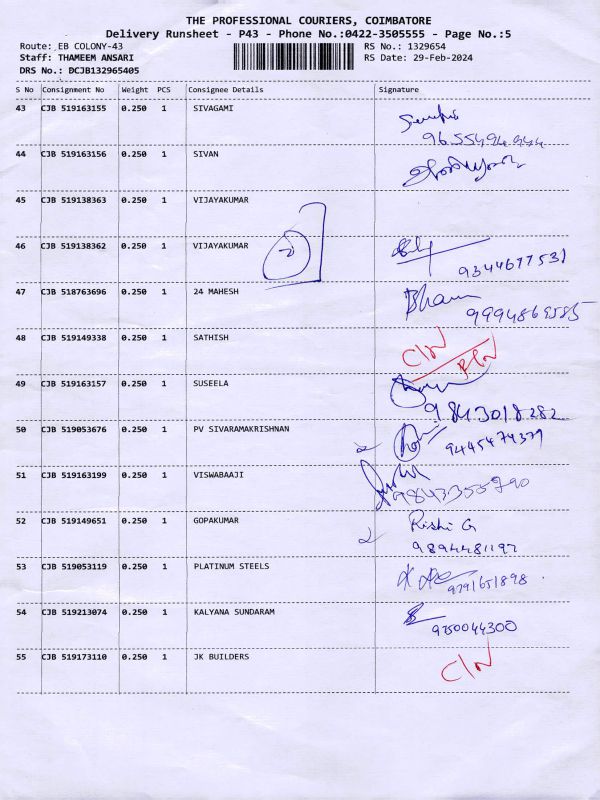 THE PROFESSIONAL COURIERS, COIMBATORE
Delivery Runsheet - P43 - Phone No.:0422-3505555 - Page No.:5
Route: EB COLONY-43 RS No.: 1329654
Staff: THAMEEM ANSARI RS Date: 29-Feb-2024
DRS No.: DCJB132965405
S No Consignment No Weight PCS Consignee Details Signature
43 CJB 519163155 0.250 1 SIVAGAMI
9655494944
44 CJB 519163156 0.250 1 SIVAN
45 CJB 519138363 0.250 1 VIJAYAKUMAR
46 CJB 519138362 0.250 1 VIJAYAKUMAR
2
9344677531
47 CJB 518763696 0.250 1 24 MAHESH
9994869585
48 CJB 519149338 0.250 1 SATHISH C/N
49 CJB 519163157 0.250 1 SUSEELA
9843018282
50 CJB 519053676 0.250 1 PV SIVARAMAKRISHNAN
9445474379
51 CJB 519163199 0.250 1 VISWABAAJI
9843355790
52 CJB 519149651 0.250 1 GOPAKUMAR Rishi G
9894481197
53 CJB 519053119 0.250 1 PLATINUM STEELS
9791651898
54 CJB 519213074 0.250 1 KALYANA SUNDARAM
9750044300
55 CJB 519173110 0.250 1 JK BUILDERS C/N